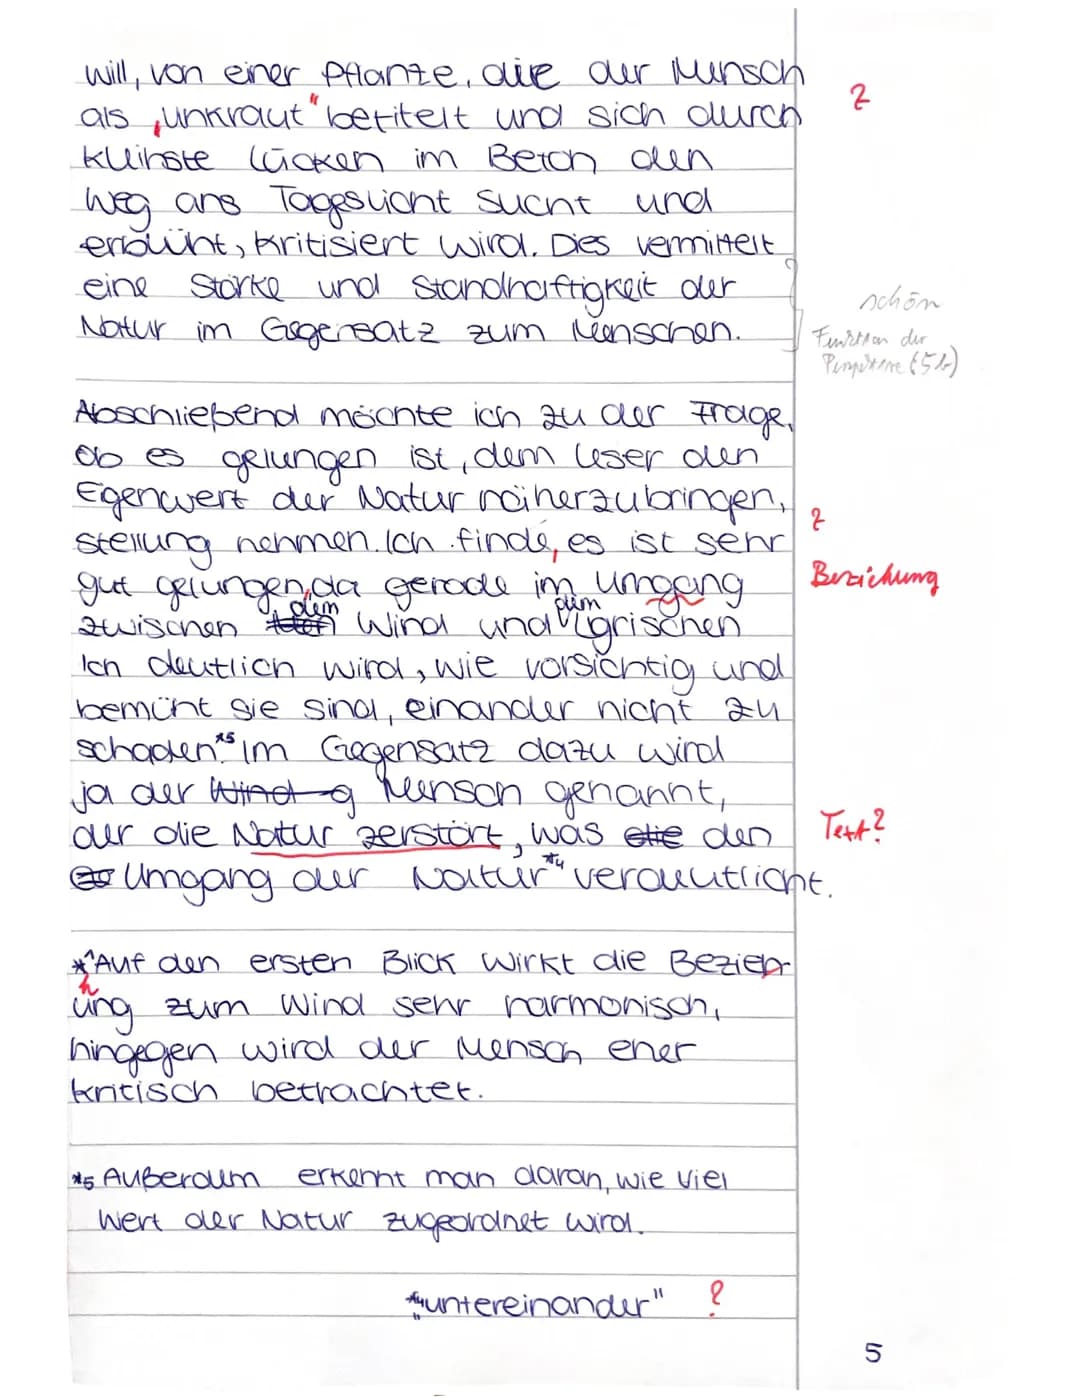 will, von einer Pflanze, die der Mensch
als „unkraut" betitelt und sich durch
kleinste Lücken im Beton den
Weg ans Tageslicht sucht und
erblüht, kritisiert wird. Dies vermittelt
eine Stärke und Standhaftigkeit der
Natur im Gegensatz zum Menschen.
Z
schön
Funktion der
(56)
Abschließend möchte ich zu der Frage,
ob es gelungen ist, dem Leser den
Egenwert der Natur näherzubringen,
stellung nehmen. Ich finde, es ist sehr
gut gelungen, da gerade im Umgang
zwischen dem Wind und dem lyrischen
Ich deutlich wird, wie vorsichtig und
bemüht sie sind, einander nicht zu
schaden.*5 Im Gegensatz dazu wird
ja der Wind g Mensch genannt,
der die Natur zerstört, was die den
Umgang der Natur*4 verdeutlicht.
Z
Beziehung
Text?
*^Auf den ersten Blick wirkt die Bezieh-
ung zum Wind sehr harmonisch,
hingegen wird der Mensch eher
kritisch betrachtet.
h
*5 Außerdem erkennt man daran, wie viel
Wert der Natur zugeordnet wird.
*4 „untereinander" ?
5